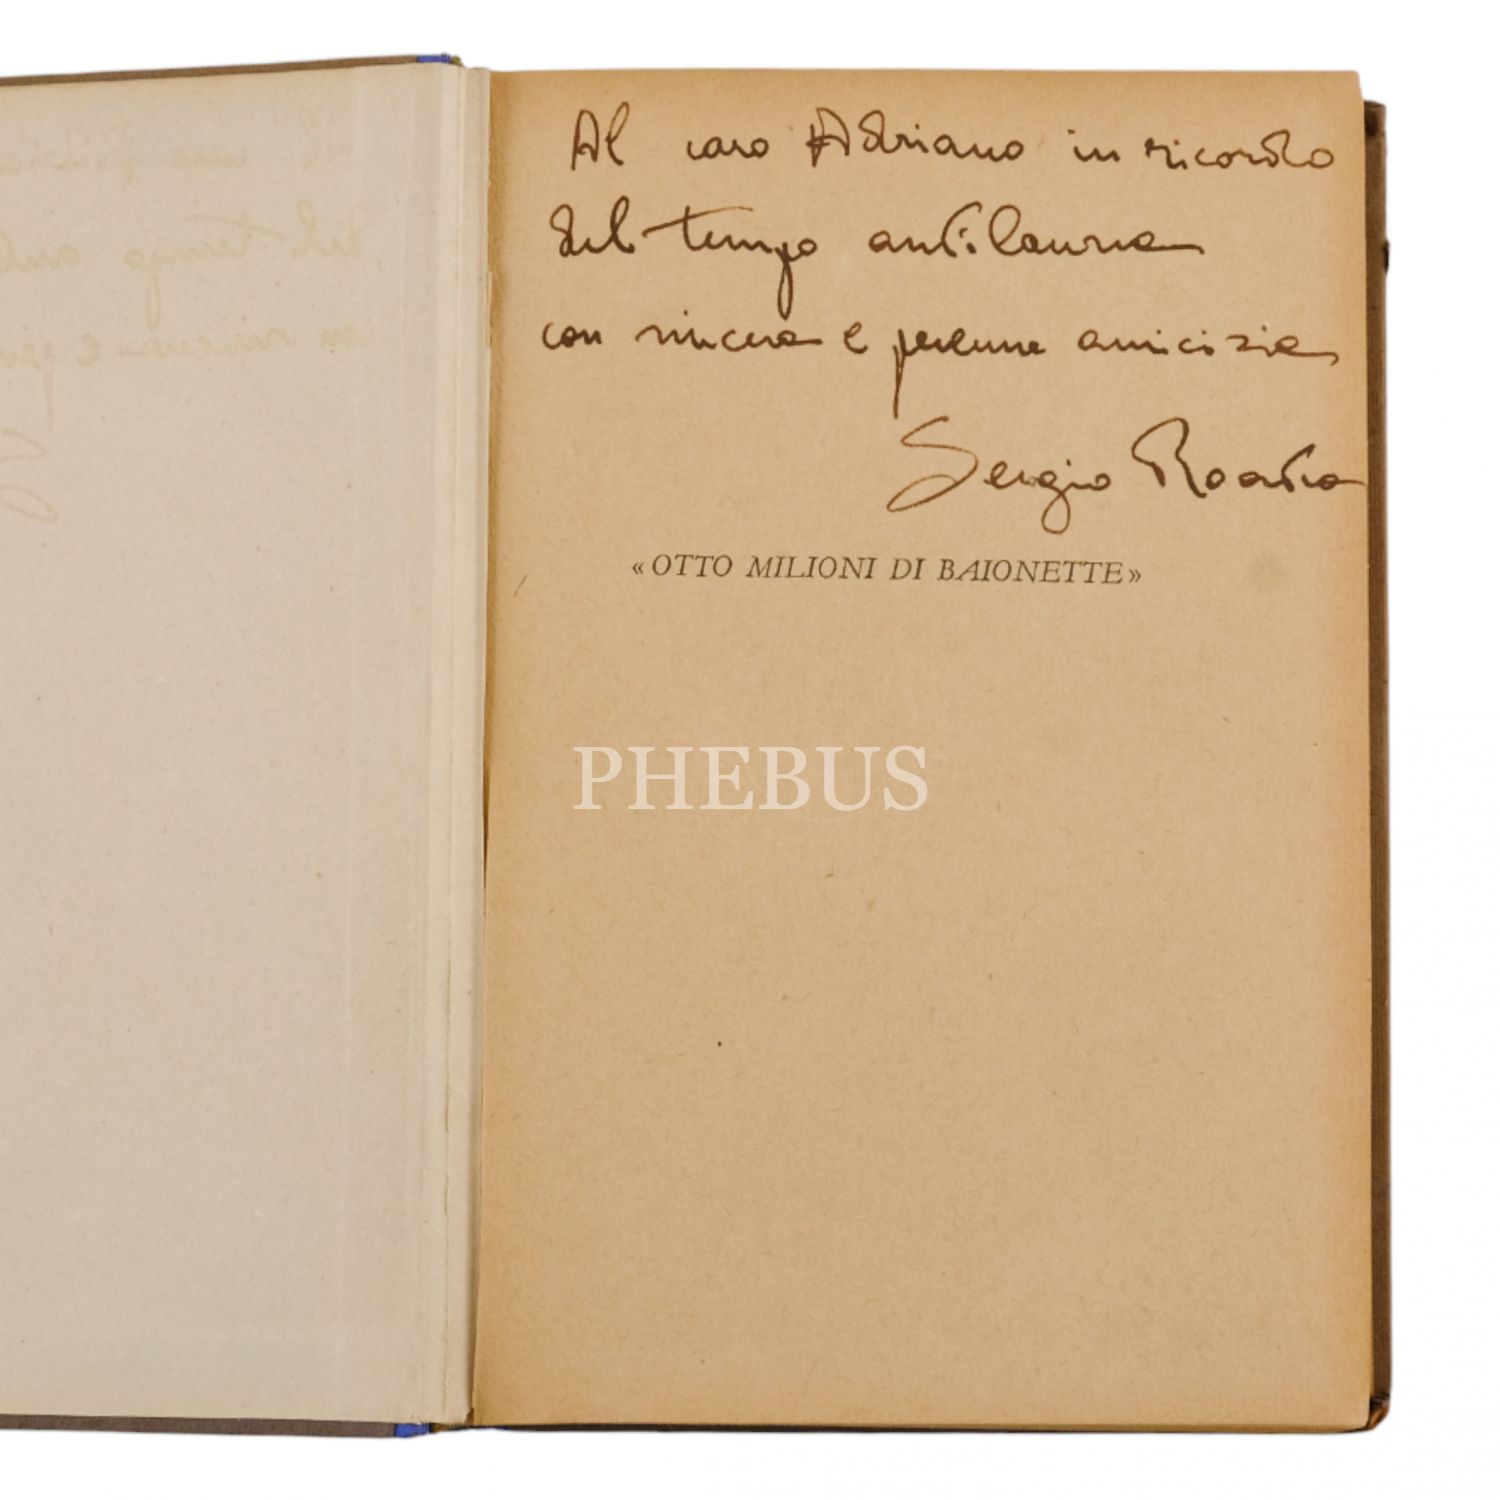 Al caro Adriano in ricordo
del tempo antilaurea
con sincera e perenne amicizia
Sergio Roatta
«OTTO MILIONI DI BAIONETTE»
PHEBUS